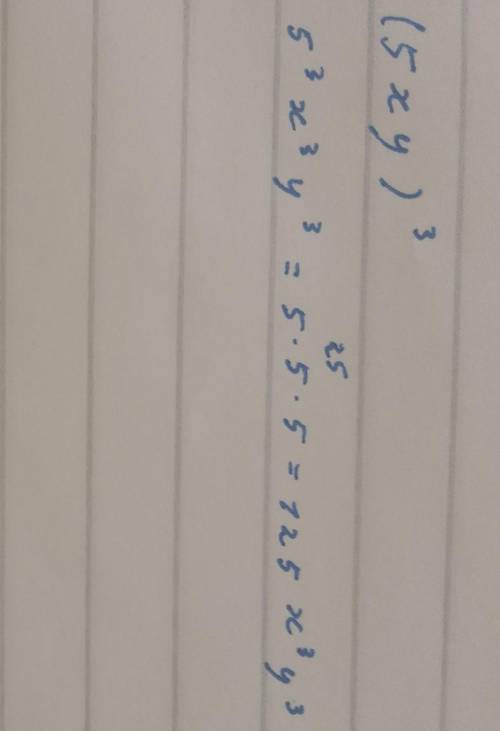 (5xy)³
25
5³x³y³ = 5·5·5 = 125x³y³